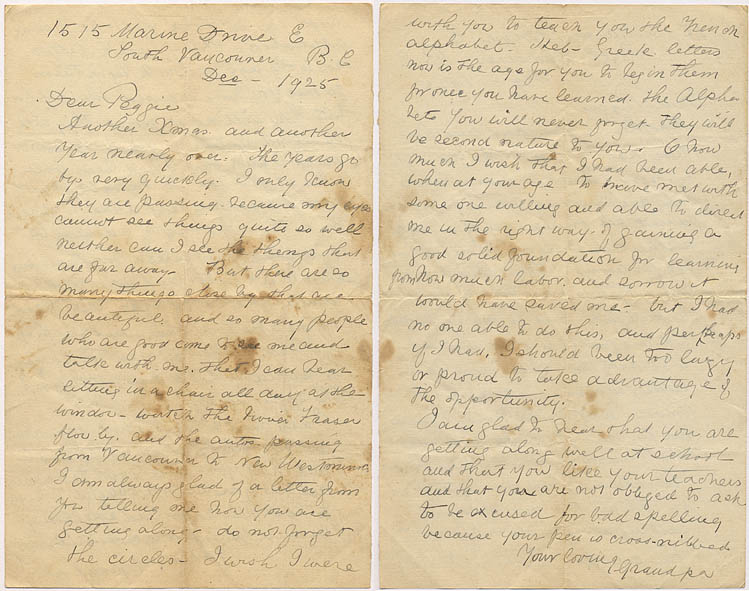 1515 Marine Drive E
South Vancouver B.C
Dec - 1925
Dear Peggie
Another Xmas. and another
Year nearly over. The years go
by very quickly. I only know
they are passing because my eyes
cannot see things quite so well
neither can I see the things that
are far away. But there are so
many things close by that are
beautiful and so many people
who are good come to see me and
talk with me. that I can bear
sitting in a chair all day at the
window - watch the River Fraser
flow by. and the autos passing
from Vancouver to New Westminster
I am always glad of a letter from
you telling me how you are
getting along - do not forget
the circles - I wish I were
with you to teach you the French
alphabet - Heb- Greek letters
now is the age for you to begin them
for once you have learned the Alpha
bets you will never forget they will
be second nature to you. O how
much I wish that I had been able,
when at your age to have met with
some one willing and able to direct
me in the right way of gaining a
good solid foundation for learning
from how much labor and sorrow it
would have saved me - but I had
no one able to do this, and perhaps
if I had, I should been too lazy
or proud to take advantage of
the opportunity.
I am glad to hear that you are
getting along well at school
and that you like your teachers
and that you are not obliged to ask
to be excused for bad spelling
because your pen is cross-nibbed
Your loving Grandpa